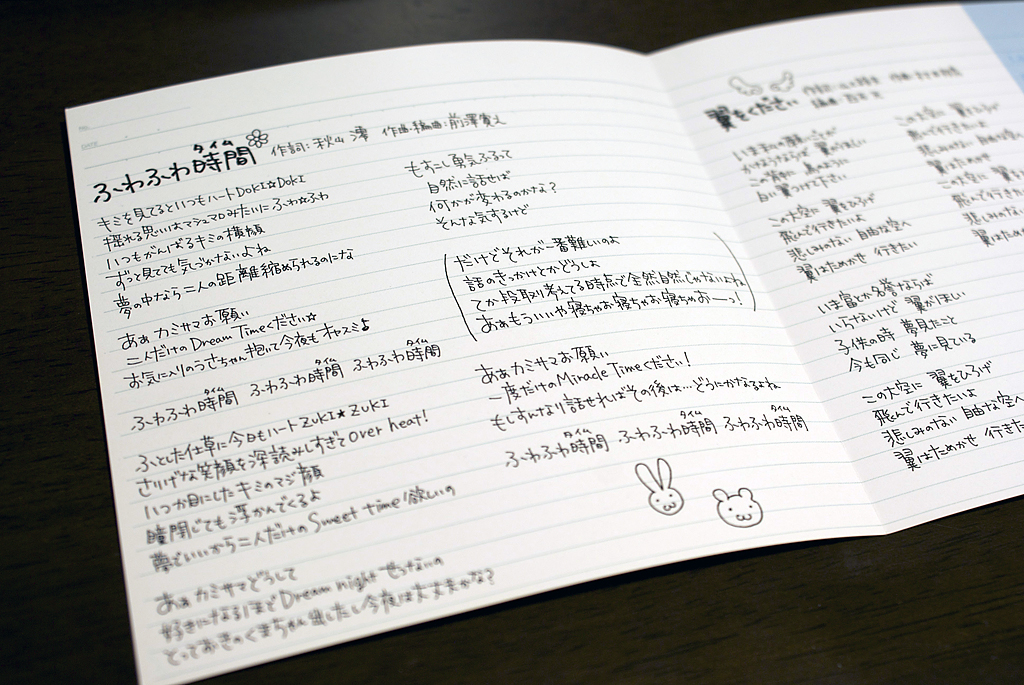 ふわふわ時間
タイム
作詞：秋山 澪 作曲・編曲：前澤寛之
キミを見てるといつもハートDOKI☆DOKI
揺れる思いはマシュマロみたいにふわ☆ふわ
いつもがんばるキミの横顔
ずっと見てても気づかないよね
夢の中なら二人の距離縮められるのにな
あぁ カミサマお願い
二人だけの Dream Timeください☆
お気に入りのうさちゃん抱いて今夜もオヤスミ♪
ふわふわ時間 ふわふわ時間 ふわふわ時間
タイム タイム タイム
ふとした仕草に今日もハートZUKI★ZUKI
さりげな笑顔を深読みしすぎてOver heat!
いつか目にしたキミのマジ顔
瞳閉じても浮かんでくるよ
夢でいいから二人だけのSweet time欲しいの
あぁ カミサマどうして
好きになるほどDream night せつないの
とっておきのくまちゃん出したし今夜は大丈夫かな?
もすこし勇気ふるって
自然に話せば
何かが変わるのかな?
そんな気するけど
(だけどそれが一番難しいのよ
話のきっかけとかどうしよ
てか段取り考えてる時点で全然自然じゃないよね
あぁもういいや寝ちゃお寝ちゃお寝ちゃおーっ!)
あぁカミサマお願い
一度だけのMiracle Timeください!
もしすんなり話せればその後は…どうにかなるよね
ふわふわ時間 ふわふわ時間 ふわふわ時間
タイム タイム タイム
翼をください
いま私の願いごとが
かなうならば 翼がほしい
この背中に 鳥のように
白い翼つけて下さい
この大空に 翼をひろげ
飛んで行きたいよ
悲しみのない 自由な空へ
翼はためかせ 行きたい
いま富とか名誉ならば
いらないけど 翼がほしい
子供の時 夢見たこと
今も同じ 夢に見ている
この大空に 翼をひろげ
飛んで行きたいよ
悲しみのない 自由な空へ
翼はためかせ 行きた
この大空に 翼をひろげ
飛んで行きたい
悲しみのない 自由な
翼はためかせ
この大空に 翼を
飛んで行きたい
悲しみのない
翼はため